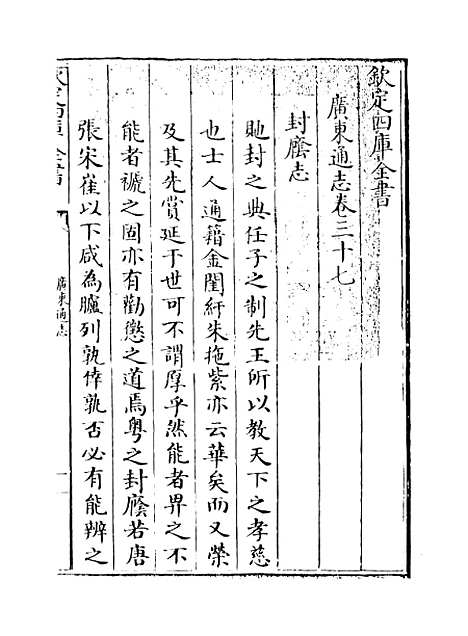 欽定四庫全書
廣東通志卷三十七
封廕志
貤封之典任子之制先王所以教天下之孝慈
也士人通籍金閨紆朱拖紫亦云華矣而又榮
及其先賞延于世可不謂厚乎然能者畀之不
能者褫之固亦有勸懲之道焉粤之封廕若唐
張宋崔以下咸為臚列孰倖孰否必有能辨之
廣東通志
一